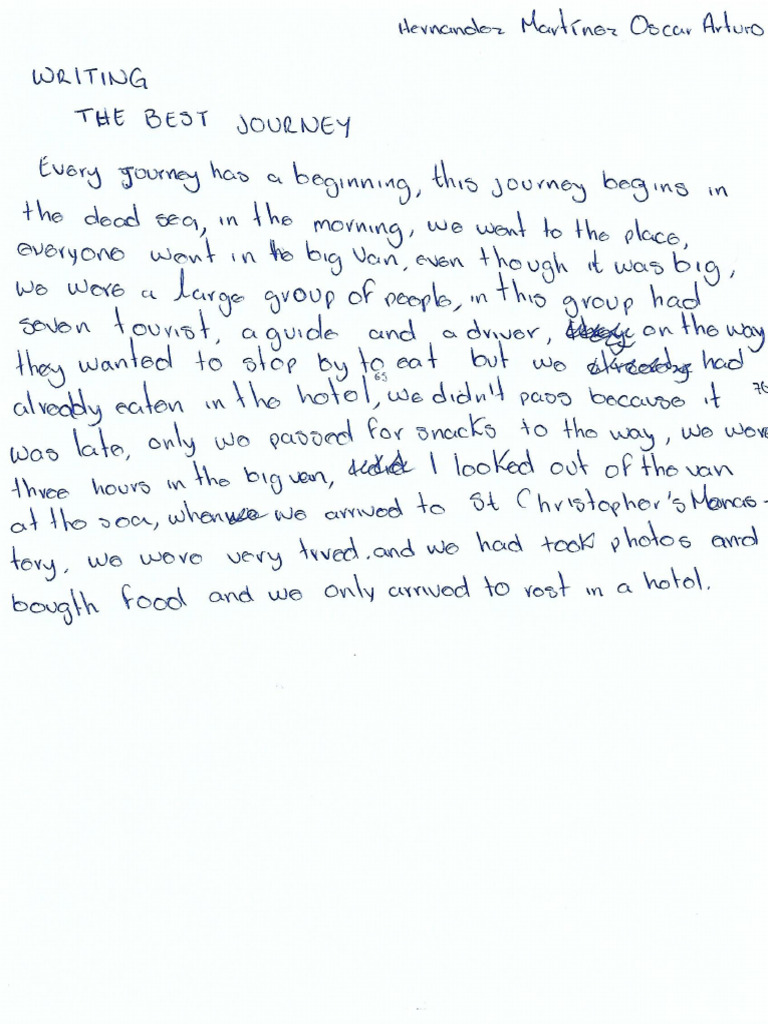 Hernandez Martínez Oscar Arturo
WRITING
THE BEST JOURNEY
Every Journey has a beginning, this journey begins in
the dead sea, in the morning, we went to the place,
everyone went in the big Van, even though it was big,
we were a large group of people, in this group had
seven tourist, a guide and a driver, on the way
they wanted to stop by to eat but we already had
65
already eaten in the hotel, we didn't pass because it 70
was late, only we passed for snacks to the way, we were
three hours in the big van, I looked out of the van
at the sea, when we arrived to St Christopher's Monas-
tery, we were very tired. and we had took photos and
bougth food and we only arrived to rest in a hotel.